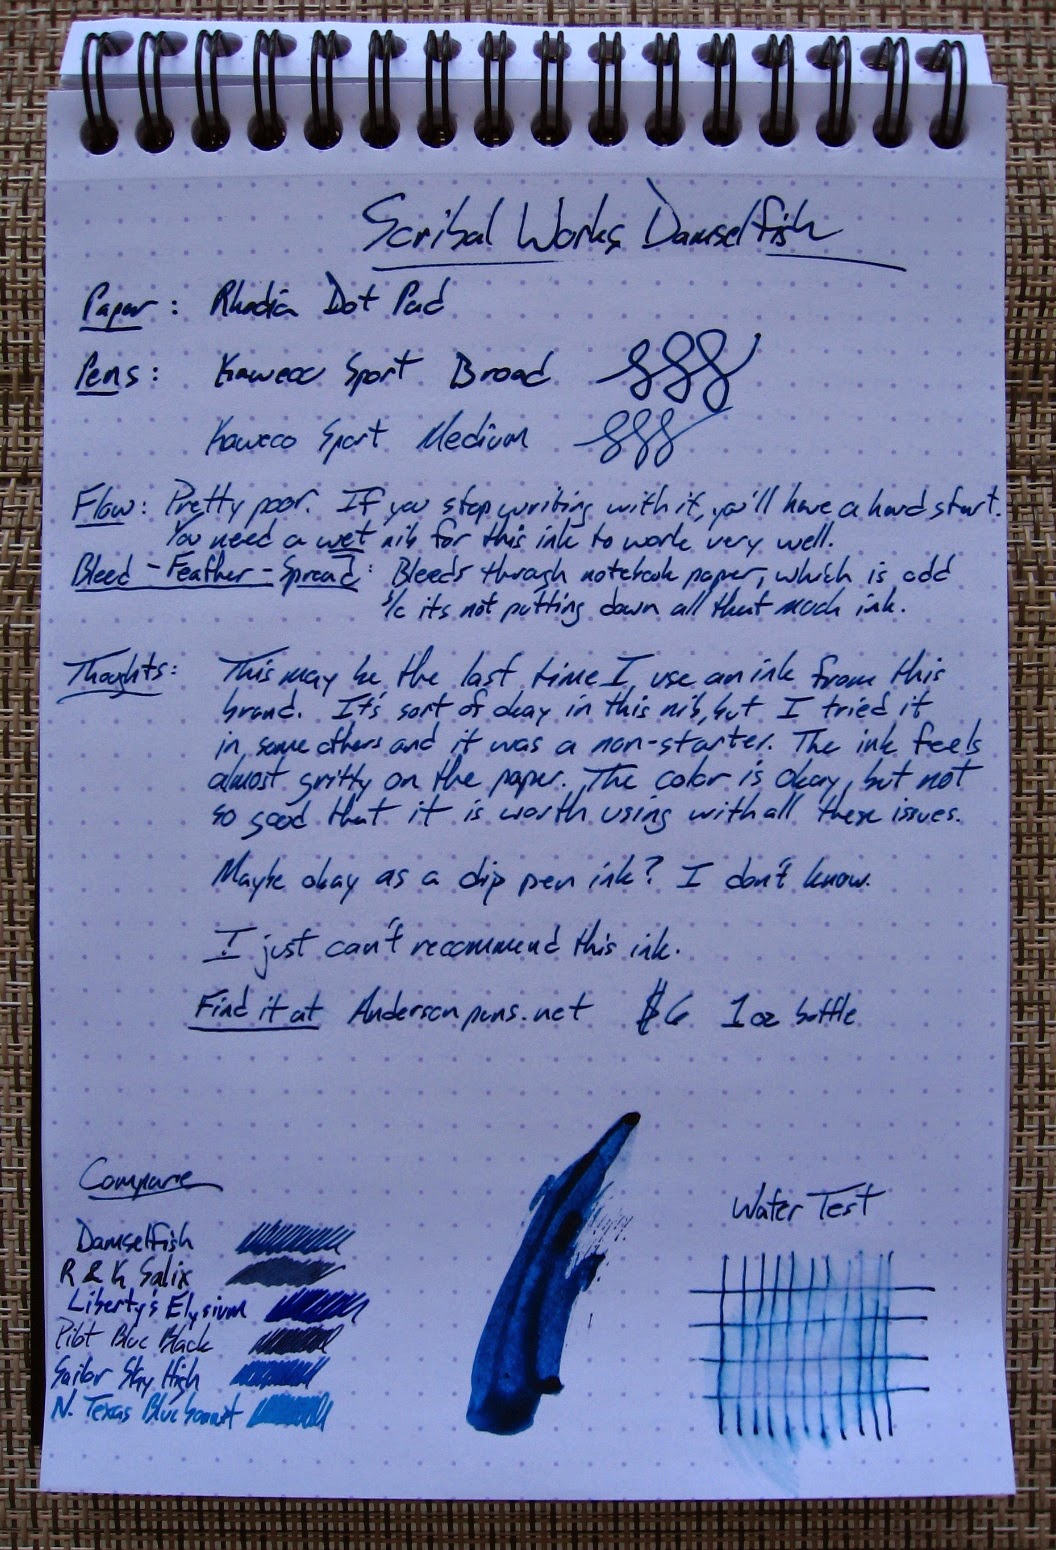 Scribal Works Damselfish
Paper: Rhodia Dot Pad
Pens: Kaweco Sport Broad
Kaweco Sport Medium
Flow: Pretty poor. If you stop writing with it, you'll have a hard start.
You need a wet nib for this ink to work very well.
Bleed - Feather - Spread: Bleeds through notebook paper, which is odd
b/c its not putting down all that much ink.
Thoughts: This may be the last time I use an ink from this
brand. It's sort of okay in this nib, but I tried it
in some others and it was a non-starter. The ink feels
almost gritty on the paper. The color is okay, but not
so good that it is worth using with all these issues.
Maybe okay as a dip pen ink? I don't know.
I just can't recommend this ink.
Find it at Andersonpens.net $6 1oz bottle
Compare
Damselfish
R & K Salix
Liberty's Elysium
Pilot Blue Black
Sailor Sky High
N. Texas Blue Bonnet
Water Test